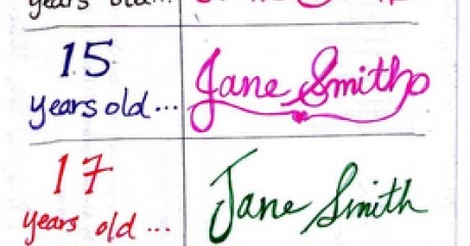 years old...
15
years old...
Jane Smith
17
years old ...
Jane Smith